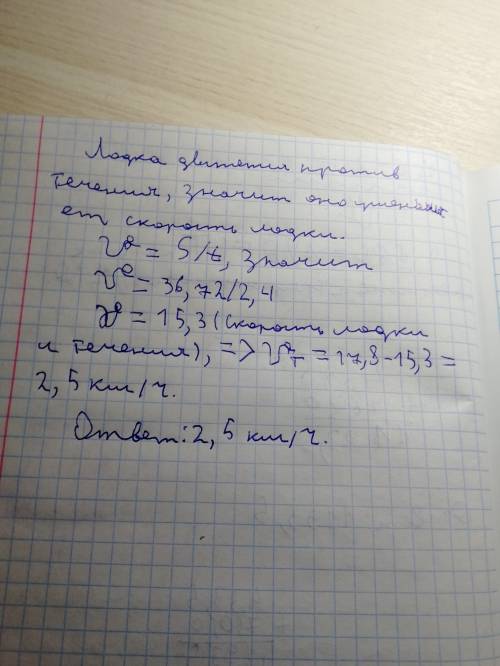 Лодка движется против
течения, значит оно уменьша
ет скорость лодки.
V = S/t, значит
V = 36,72/2,4
V = 15,3 (скорость лодки
и течения), => Vт = 17,8-15,3 =
2,5 км/ч.
Ответ: 2,5 км/ч.